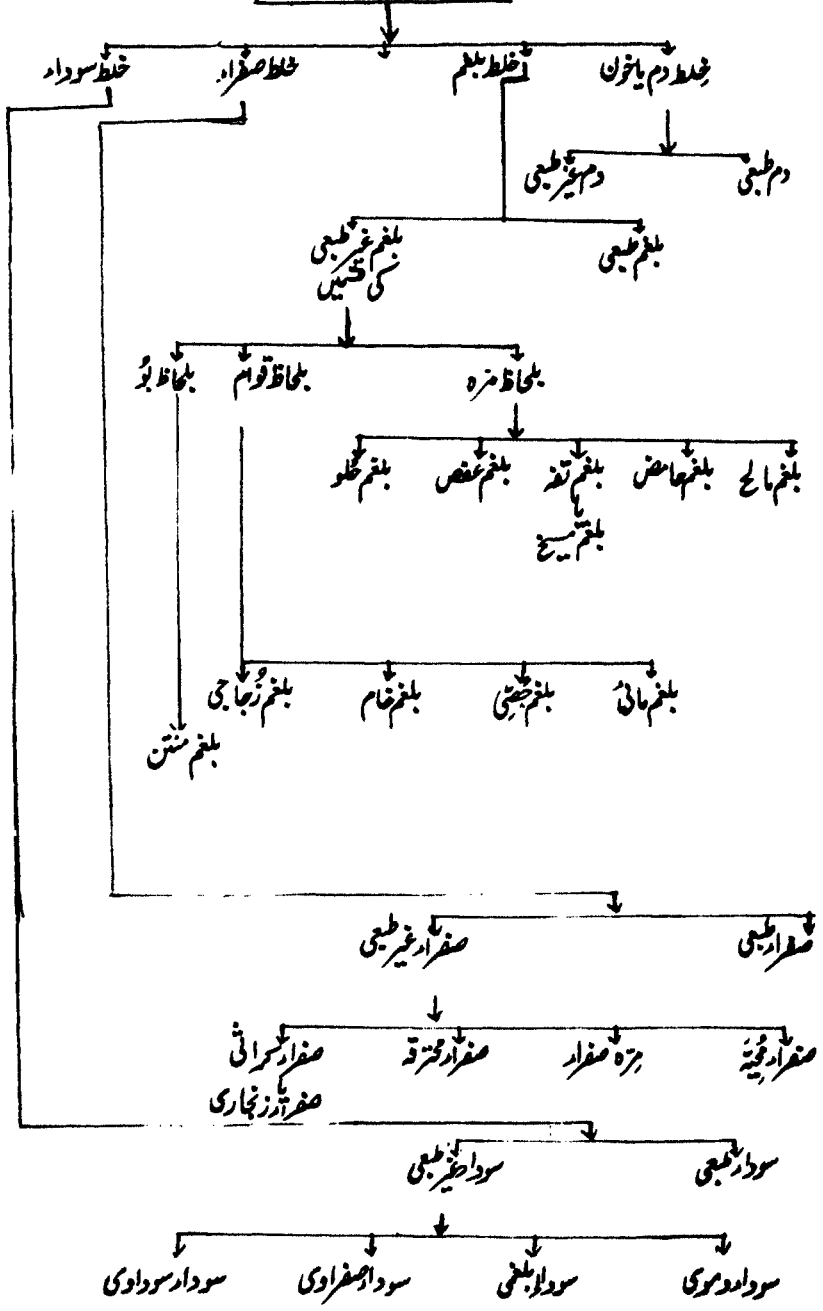 خلط دم یا خون
خلط بلغم
خلط صفراء
خلط سوداء
دم طبعی
دم غیر طبعی
بلغم طبعی
بلغم غیر طبعی
کی قسمیں
بلحاظ مزہ
بلحاظ قوام
بلحاظ بُو
بلغم مالح
بلغم حامض
بلغم تفہ
یا
بلغم مسیخ
بلغم عفص
بلغم حلو
بلغم مائی
بلغم جصّی
بلغم خام
بلغم زُجاجی
بلغم منتن
صفراء طبعی
صفراء غیر طبعی
صفراء مُحیّہ
مرّہ صفراء
صفراء محترقہ
صفراء کراثی
یا
صفراء زنجاری
سوداء طبعی
سوداء غیر طبعی
سوداء دموی
سوداء بلغمی
سوداء صفراوی
سوداء سوداوی